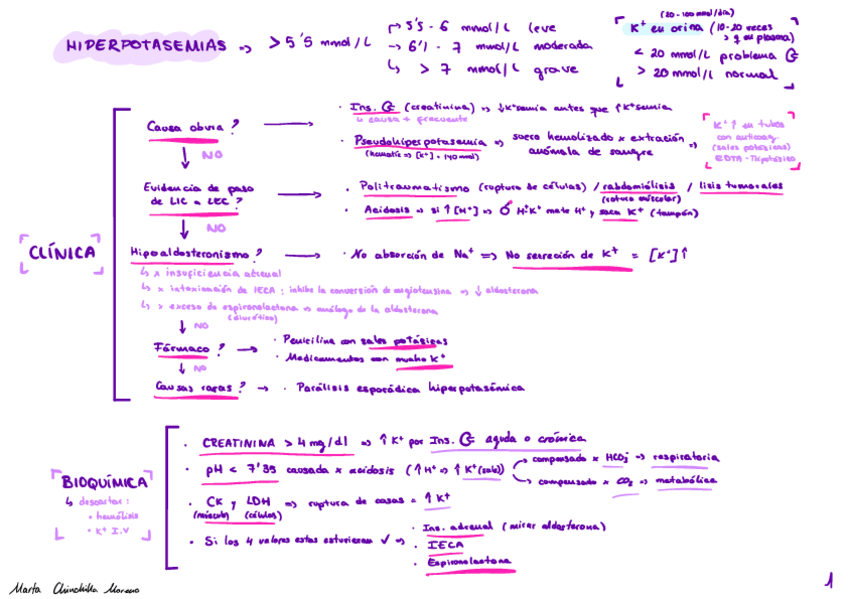 HIPERPOTASEMIAS => > 5'5 mmol/L
5'5 - 6 mmol/L leve
6'1 - 7 mmol/L moderada
> 7 mmol/L grave
(20-100 mmol/día)
K+ en orina (10-20 veces
> q en plasma)
< 20 mmol/L problema
> 20 mmol/L normal
CLÍNICA
Causa obvia?
· Ins. (creatinina) => ↓K+uemia antes que ↑K+uemia
↳ causa + frecuente
· Pseudohiperpotasemia => suero hemolizado x extracción
(hematíe => [K+] = 140 mmol) anómala de sangre =>
K+ ↑ en tubos
con anticoag.
(sales potásicas)
EDTA - Tripotásico
NO
Evidencia de paso
de LIC a LEC?
· Politraumatismo (ruptura de células) / rabdomiólisis / lisis tumorales
(rotura muscular)
· Acidosis => si ↑[H+] => H+K+ mete H+ y saca K+ (tampón)
NO
Hipoaldosteronismo?
· No absorción de Na+ => No secreción de K+ = [K+]↑
↳ x insuficiencia adrenal
↳ x intoxicación de IECA: inhibe la conversión de angiotensina => ↓ aldosterona
↳ x exceso de espironolactona => análogo de la aldosterona
(diurético)
NO
Fármaco?
· Penicilina con sales potásicas
· Medicamentos con mucho K+
NO
Causas raras? → · Parálisis esporádica hiperpotasémica
BIOQUÍMICA
↳ descartar:
• hemólisis
• K+ I.V
· CREATININA > 4 mg/dl => ↑ K+ por Ins. aguda o crónica
· pH < 7'35 causada x acidosis (↑H+ => ↑ K+ (sale))
compensado x HCO3- => respiratoria
compensado x CO2 => metabólica
· CK y LDH => ruptura de cosas = ↑ K+
(músculo) (células)
· Si los 4 valores estas estuvieran ✓ =>
· Ins. adrenal (mirar aldosterona)
· IECA
· Espironolactona
Marta Chinchilla Moreno
1